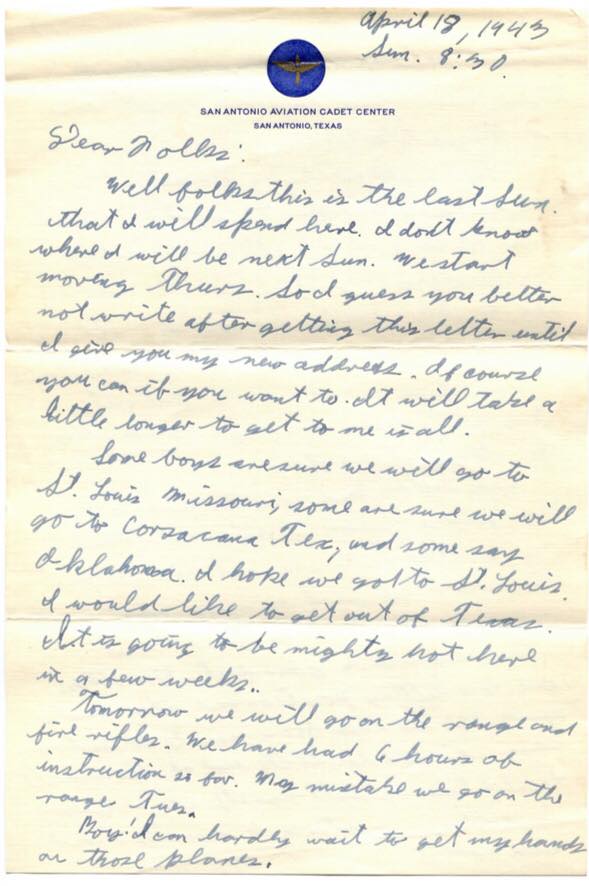 April 18, 1943
Sun. 8:30.
SAN ANTONIO AVIATION CADET CENTER
SAN ANTONIO, TEXAS
Dear Folks:
Well folks this is the last Sun.
that I will spend here. I don't know
where I will be next Sun. We start
moving Thurs. So I guess you better
not write after getting this letter until
I give you my new address. Of course
you can if you want to. It will take a
little longer to get to me is all.
Some boys are sure we will go to
St. Louis Missouri, some are sure we will
go to Corsacana Tex, and some say
Oklahoma. I hope we go to St. Louis.
I would like to get out of Texas.
It is going to be mighty hot here
in a few weeks..
Tomorrow we will go on the range and
fire rifles. We have had 6 hours of
instruction so far. My mistake we go on the
range Tues.
Boy! I can hardly wait to get my hands
on those planes.